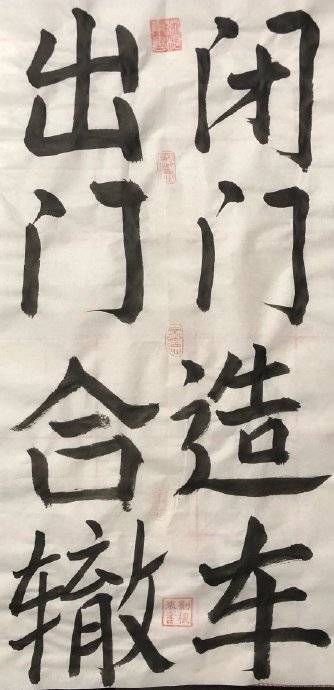 闭门造车
出门合辙